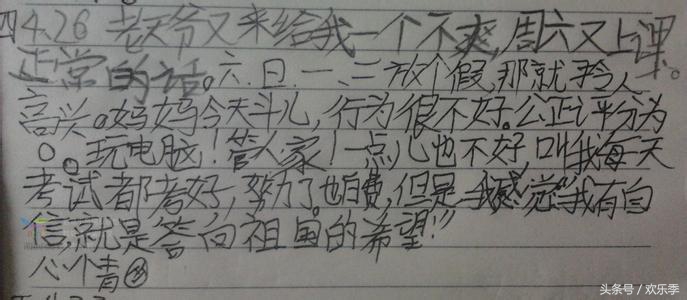 四4.26 老天爷又来给我一个不爽,周六又上课。
正常的话。六、日、一、二放个假,那就令人
高兴。妈妈今天斗儿,行为很不好。公正评分为
0。玩电脑!管人家!一点儿也不好,叫我每天
考试都考好,努力了也白费,但是我感觉“我有自
信,就是答向祖国的希望!”
心情
头条号/欢乐季